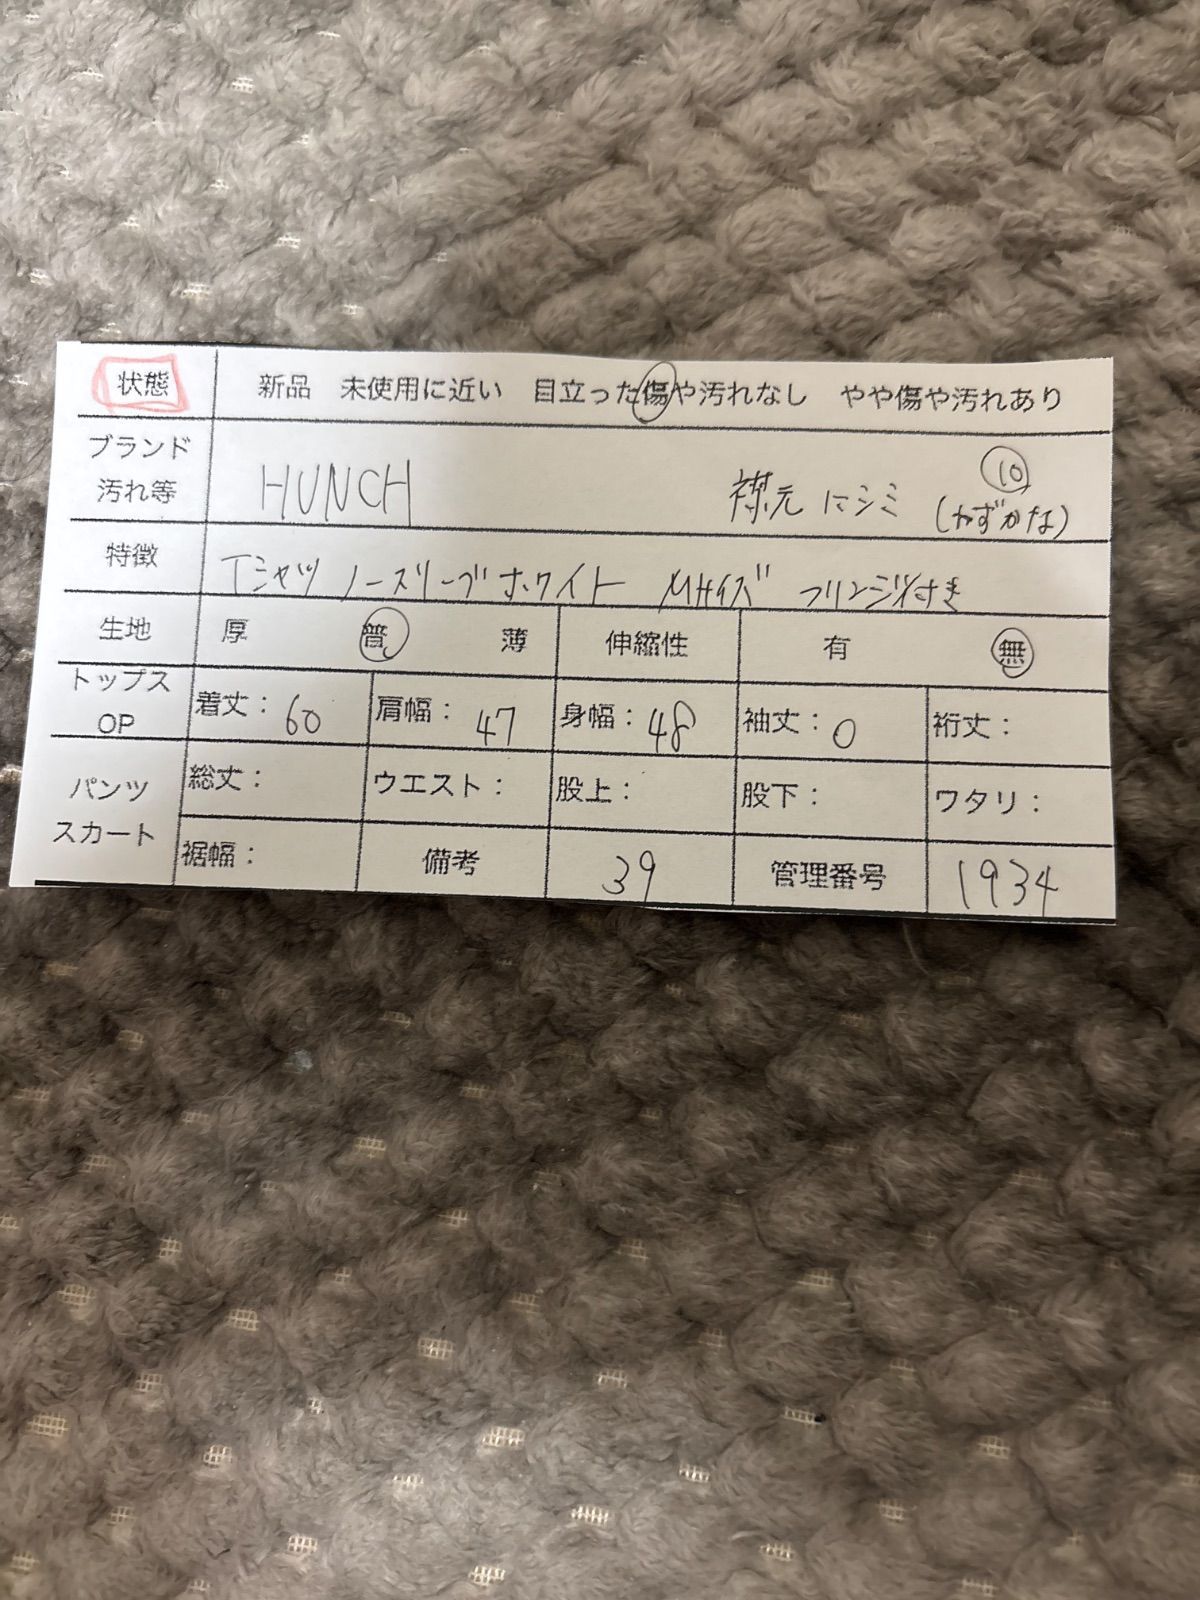 状態 新品 未使用に近い 目立った傷や汚れなし やや傷や汚れあり
ブランド 汚れ等 HUNCH 襟元にシミ (わずかな) 10
特徴 Tシャツ ノースリーブ ホワイト Mサイズ フリンジ付き
生地 厚 普 薄 伸縮性 有 無
トップス OP 着丈：60 肩幅：47 身幅：48 袖丈：0 裄丈：
パンツ スカート 総丈： ウエスト： 股上： 股下： ワタリ：
裾幅： 備考 39 管理番号 1934